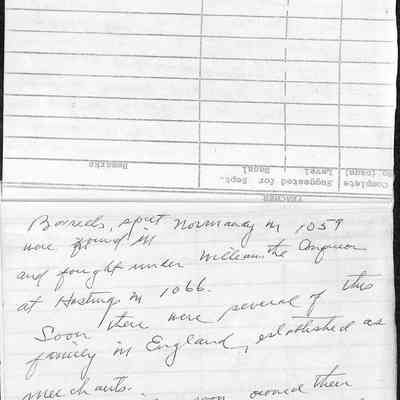 Complete
No. (page)
Suggested
Level
for Sept.
Basal
Remarks
TEACHER
in 1059
were found in
and fought under William the Conqueror
at Hastings in 1066.
Soon there were several of this
family in England, established as
merchants.
owned their